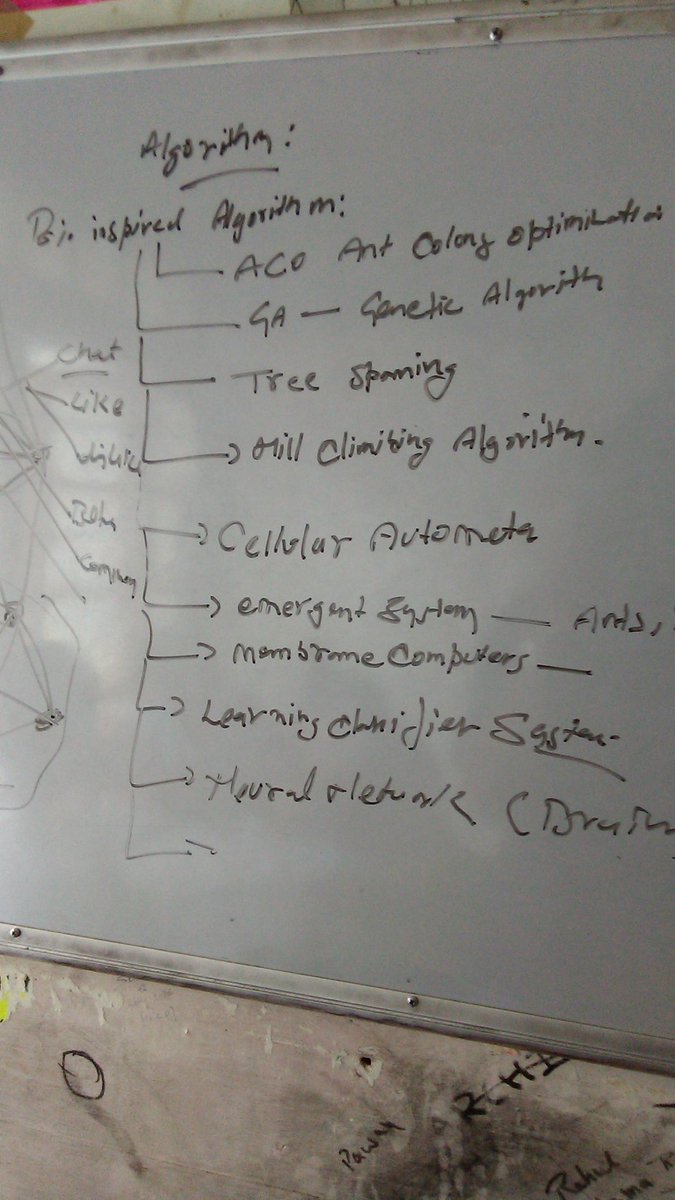 Algorithm:
Bio inspired Algorithm:
ACO Ant Colony Optimization
GA — Genetic Algorith
Tree Spaming
Hill Climbing Algorithm.
Cellular Autometa
emergent System — Ants,
Membrane Computers —
Learning Classifier System
Neural Network (Brain
Chat
Like
dislike
RCHI
Pawan
Rahul